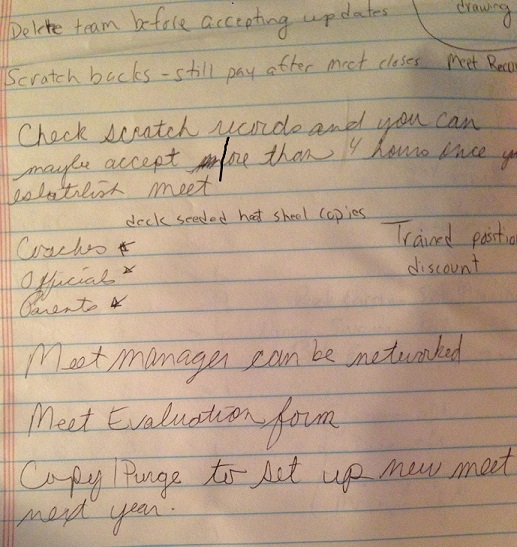 Delete team before accepting updates
drawing
Scratch backs - still pay after meet closes
Meet Recor
Check scratch records and you can
maybe accept more than 4 hours once y
establish meet
deck seeded heat sheet copies
Coaches *
Officials *
Parents *
Trained positio
discount
Meet manager can be networked
Meet Evaluation form
Copy/Purge to set up new meet
next year.